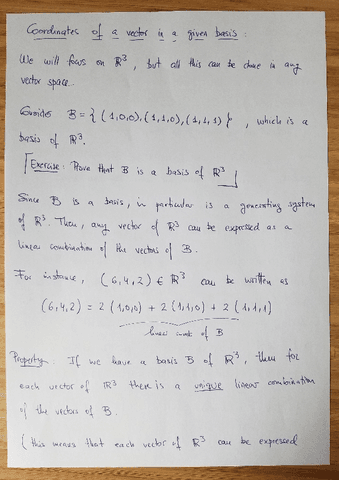 Coordinates of a vector in a given basis:
We will focus on ℝ³, but all this can be done in any
vector space.
Consider B = { (1,0,0), (1,1,0), (1,1,1) }, which is a
basis of ℝ³.
[Exercise: Prove that B is a basis of ℝ³]
Since B is a basis, in particular is a generating system
of ℝ³. Then, any vector of ℝ³ can be expressed as a
linear combination of the vectors of B.
For instance, (6,4,2) ∈ ℝ³ can be written as
(6,4,2) = 2 (1,0,0) + 2 (1,1,0) + 2 (1,1,1)
linear comb of B
Property. If we have a basis B of ℝ³, then for
each vector of ℝ³ there is a unique linear combination
of the vectors of B.
(this means that each vector of ℝ³ can be expressed